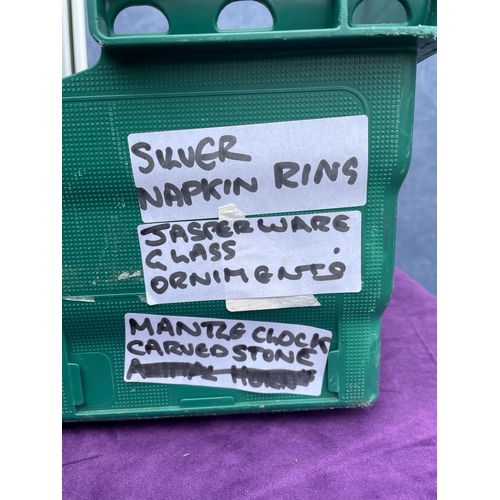 SILVER
NAPKIN RING
JASPERWARE
GLASS
ORNIMENTS
MANTLE CLOCK
CARVED STONE
ANIMAL HORNS